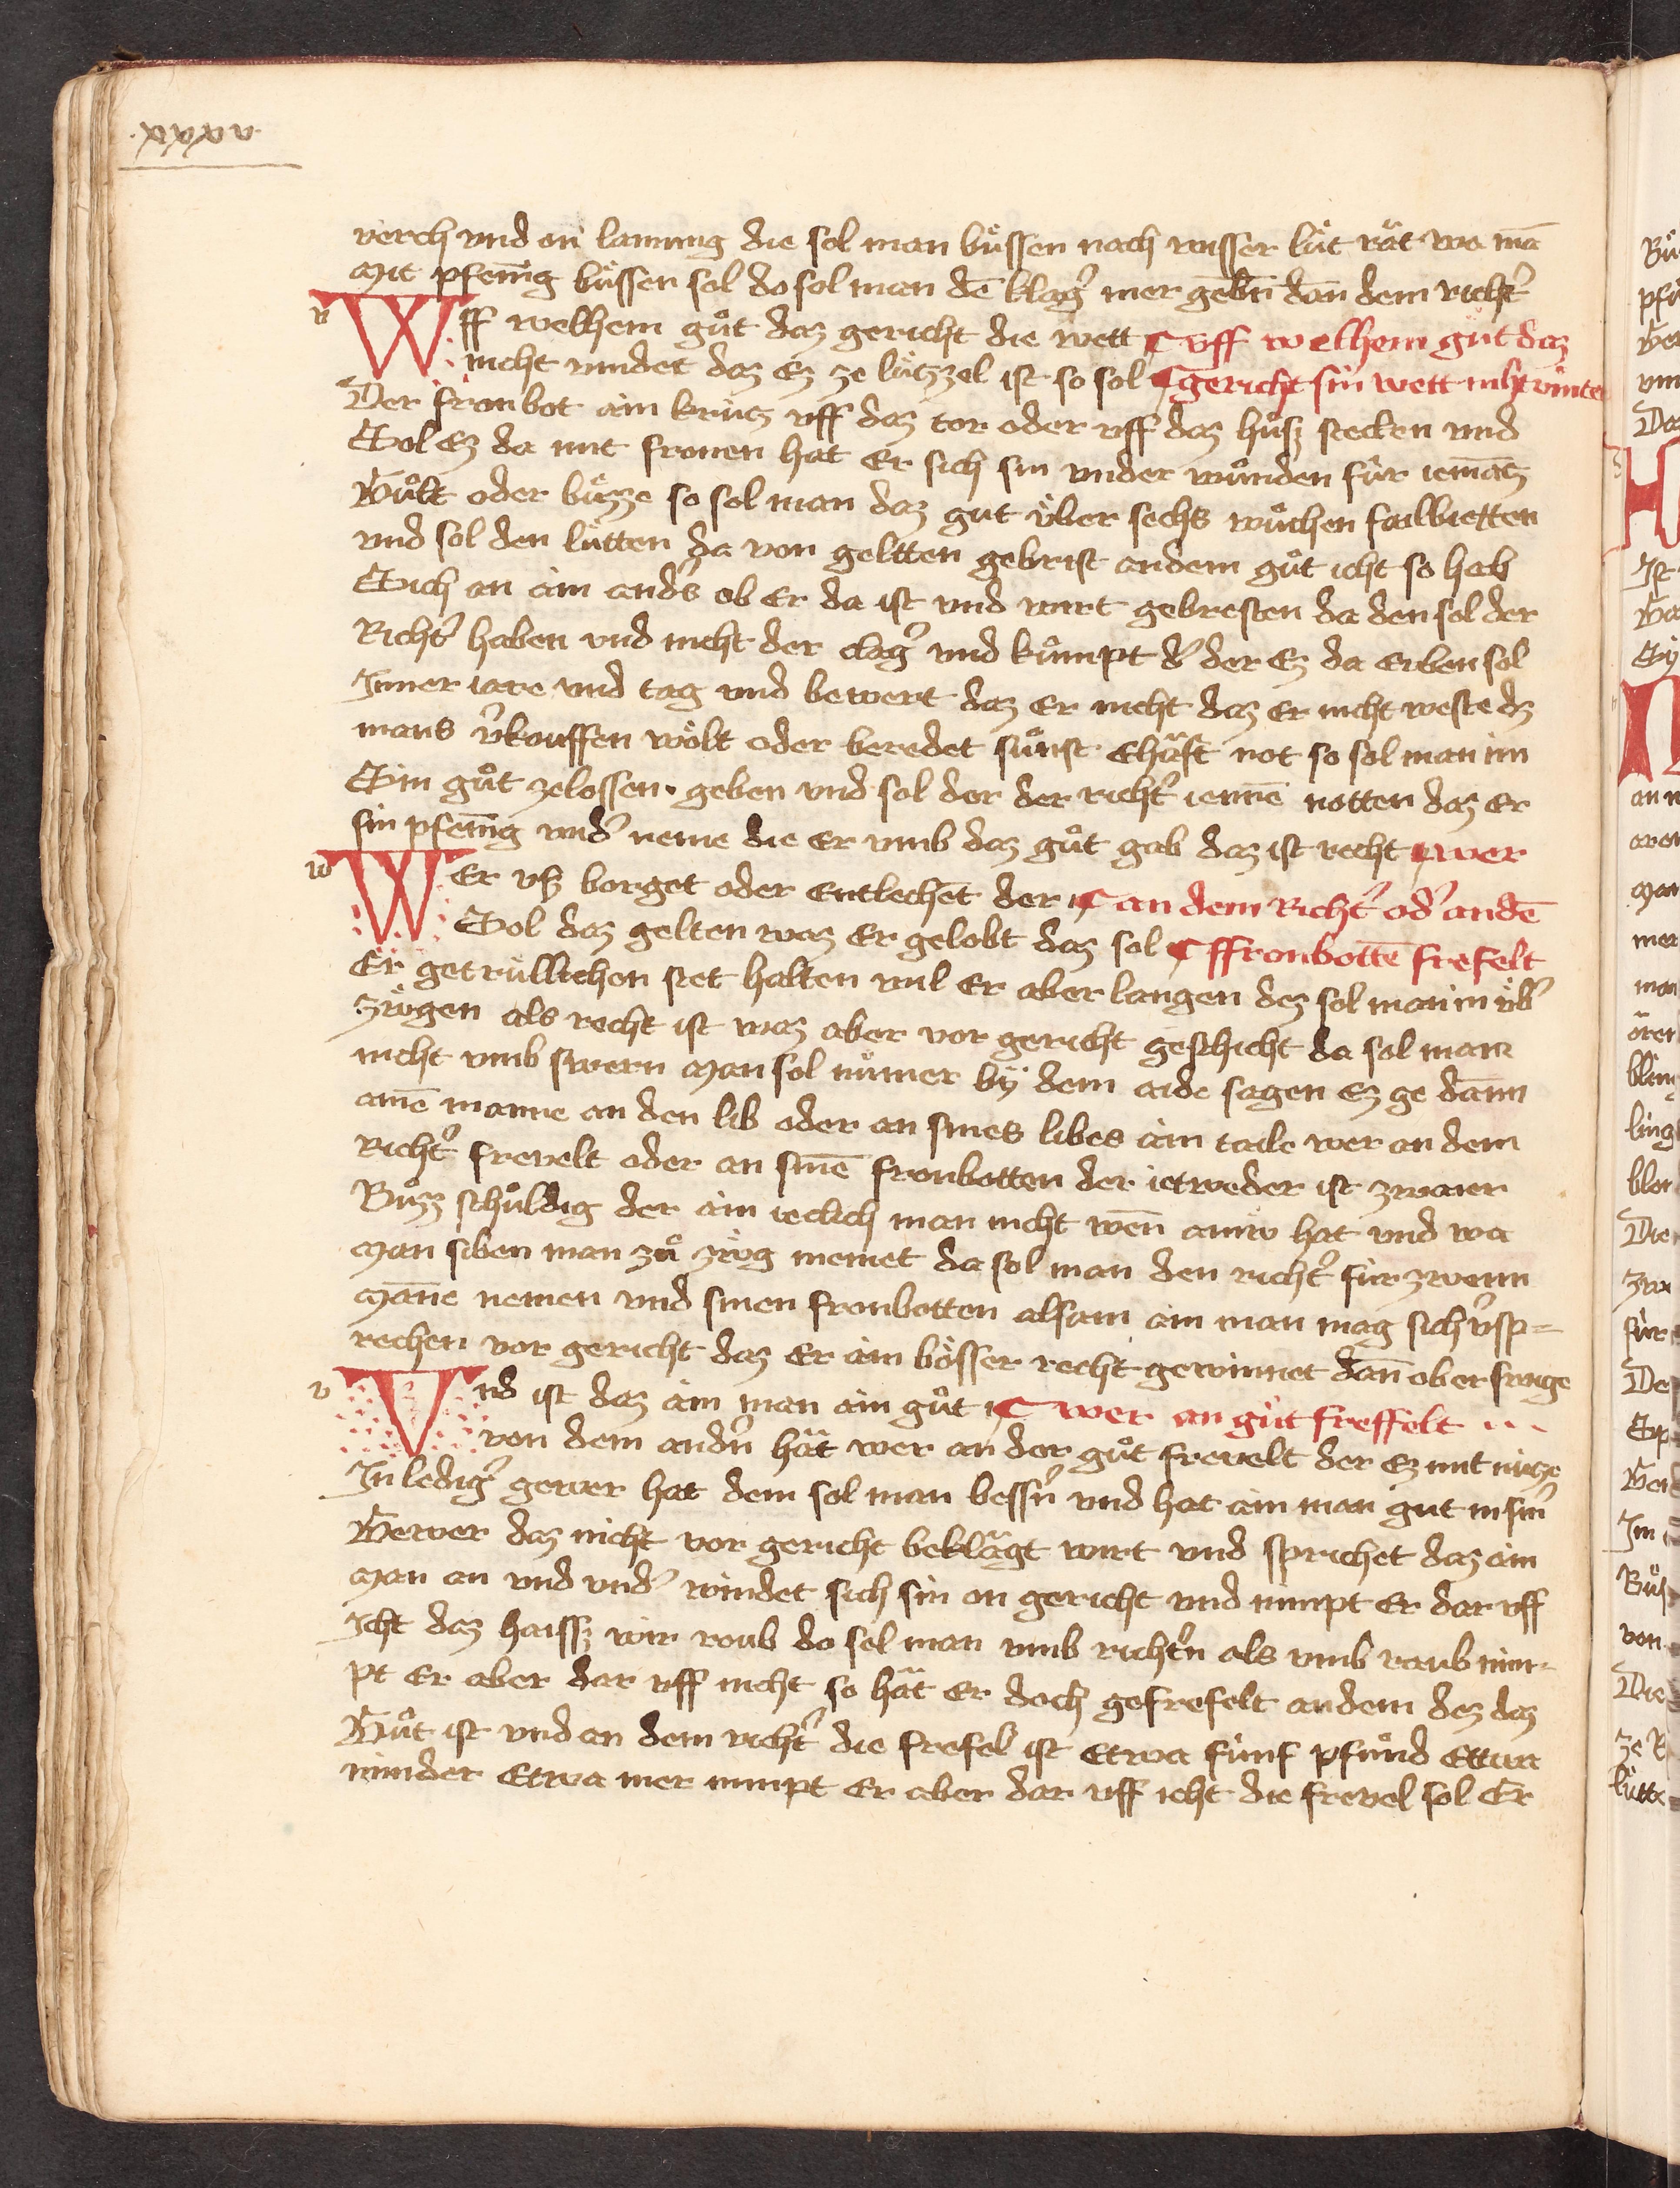 ·xxxv·
verch vnd on lammung die sol man bu̍ssen nach wisser lu̍t rät wa mā
Mit pfeñig bu̍ssen sol do sol man dē klag̉ mer gebn̄ dan̄ dem richt̉
v Wff welhem gůt daz gericht die wett ¶ vff welhem gůt daz
nicht vindet daz Ez ze lu̍tzzel ist so sol ¶ gericht sin wett niht vinte
Der fronbot ain kru̍tz vff daz tor oder vff daz hůsz stecken vnd
Sol Ez da mit fronen hat Er sich sin vnder wůnden fu̍r iemātz
Gůlt oder bůzze so sol man daz gut u̍ber sechs wůchen failbietten
vnd sol den lu̍tten da von geltten gebrist an dem gůt icht so hab
Sich an ain and̉s ob Er da ist vnd wirt gebresten da den sol der
Richt̉ haben vnd nicht der clag̉ vnd kůmpt d̉ der Ez da Erben sol
Inner iare vnd tag vnd bewert daz Er nicht daz Er nicht weste dz
mans v̉kouffen wölt oder beredet sůnst Ehäft not so sol man im
Sin gůt zelossen · geben vnd sol der der richt̉ ienne̅ notten daz Er
sin pfeñig wid̉ neme die Er vmb daz gůt gab daz ist recht ¶ wer
w WEr vsz borget oder Entlechēt der ¶ an dem Richt̉ od̉ andē
Sol daz gelten waz Er gelobt daz sol ¶ ffronbottē frefelt
Er getru̍lichen stet halten wil Er aber langen dez sol man im u̍b̉
zu̍gen als recht ist waz aber vor gericht geschicht da sol man
nicht vmb swern Man sol nu̍mer bÿ dem aide sagen Ez ge dann
ainē manne an den lib oder an sines libes ain taile wer an dem
Richt̉ frevelt oder an sinē fronbotten der ietweder ist zwaier
Bůzz schůldig der ain ieclich man nicht wen̄ ainu̍ hat vnd wa
Man siben man zů zu̍g niemet da sol man den richt̉ fu̍r zwenn
Māne nemen vnd sinen fronbotten alsam ain man mag sich v̉sp=
rechen vor gericht daz Er ain bösser recht gewinnet dan̄ ober swige
v Vnd ist daz ain man ain gůt ¶ wer an gůt freffelt ···
von dem andn̉ hät wer an der gůt frevelt der Ez mit nu̍tze
In ledig̉ gewer hat dem sol man bessn̉ vnd hat ain man gut in sin̉
Gewer daz nicht vor gericht beklägt wirt vnd sprichet daz ain
Man an vnd vnd̉ windet sich sin on gericht vnd nimpt Er dar vff
Icht daz haissz wir roub do sol man vmb richtn̉ als vmb raub nim-
pt Er aber dar vff nicht so hät Er doch gefrefelt an dem dez daz
Gůt ist vnd an dem richt̉ die frefel ist Etwa fu̍nf pfůnd Ettwa
minder Etwa mer nimpt Er aber dar vff icht die frevel sol Er